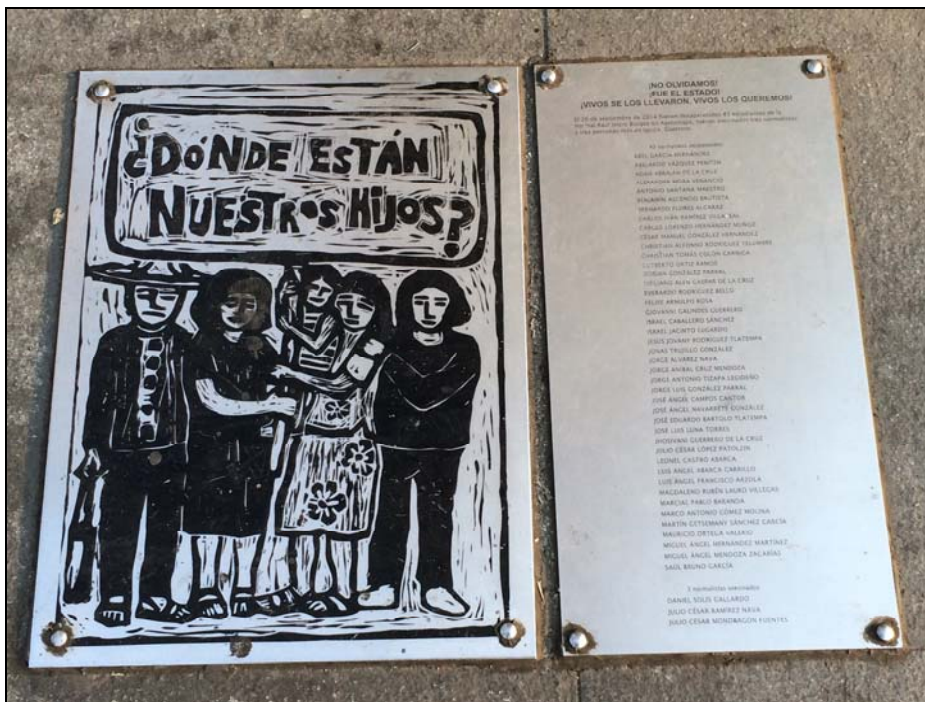 ¿DÓNDE ESTÁN
NUESTROS HIJOS?
¡NO OLVIDAMOS!
¡FUE EL ESTADO!
¡VIVOS SE LOS LLEVARON, VIVOS LOS QUEREMOS!
El 26 de septiembre de 2014 fueron desaparecidos 43 normalistas de la
Normal Raúl Isidro Burgos en Ayotzinapa,
y tres personas más en Iguala, Guerrero.
43 normalistas desaparecidos
ABEL GARCÍA HERNÁNDEZ
ABELARDO VÁZQUEZ PENITEN
ADÁN ABRAJAN DE LA CRUZ
ALEXANDER MORA VENANCIO
ANTONIO SANTANA MAESTRO
BENJAMÍN ASCENCIO BAUTISTA
BERNARDO FLORES ALCARAZ
CARLOS IVÁN RAMÍREZ VILLAREAL
CARLOS LORENZO HERNÁNDEZ MUÑOZ
CÉSAR MANUEL GONZÁLEZ HERNÁNDEZ
CHRISTIAN ALFONSO RODRÍGUEZ TELUMBRE
CHRISTIAN TOMÁS COLÓN GARNICA
CUTBERTO ORTIZ RAMOS
DORIAN GONZÁLEZ PARRAL
EMILIANO ALEN GASPAR DE LA CRUZ
EVERARDO RODRÍGUEZ BELLO
FELIPE ARNULFO ROSA
GIOVANNI GALINDES GUERRERO
ISRAEL CABALLERO SÁNCHEZ
ISRAEL JACINTO LUGARDO
JESÚS JOVANY RODRÍGUEZ TLATEMPA
JONÁS TRUJILLO GONZÁLEZ
JORGE ÁLVAREZ NAVA
JORGE ANÍBAL CRUZ MENDOZA
JORGE ANTONIO TIZAPA LEGIDEÑO
JORGE LUIS GONZÁLEZ PARRAL
JOSÉ ÁNGEL CAMPOS CANTOR
JOSÉ ÁNGEL NAVARRETE GONZÁLEZ
JOSÉ EDUARDO BARTOLO TLATEMPA
JOSÉ LUIS LUNA TORRES
JHOSIVANI GUERRERO DE LA CRUZ
JULIO CÉSAR LÓPEZ PATOLZIN
LEONEL CASTRO ABARCA
LUIS ÁNGEL ABARCA CARRILLO
LUIS ÁNGEL FRANCISCO ARZOLA
MAGDALENO RUBÉN LAURO VILLEGAS
MARCIAL PABLO BARANDA
MARCO ANTONIO GÓMEZ MOLINA
MARTÍN GETSEMANY SÁNCHEZ GARCÍA
MAURICIO ORTEGA VALERIO
MIGUEL ÁNGEL HERNÁNDEZ MARTÍNEZ
MIGUEL ÁNGEL MENDOZA ZACARÍAS
SAÚL BRUNO GARCÍA
3 normalistas asesinados
DANIEL SOLÍS GALLARDO
JULIO CÉSAR RAMÍREZ NAVA
JULIO CÉSAR MONDRAGÓN FUENTES